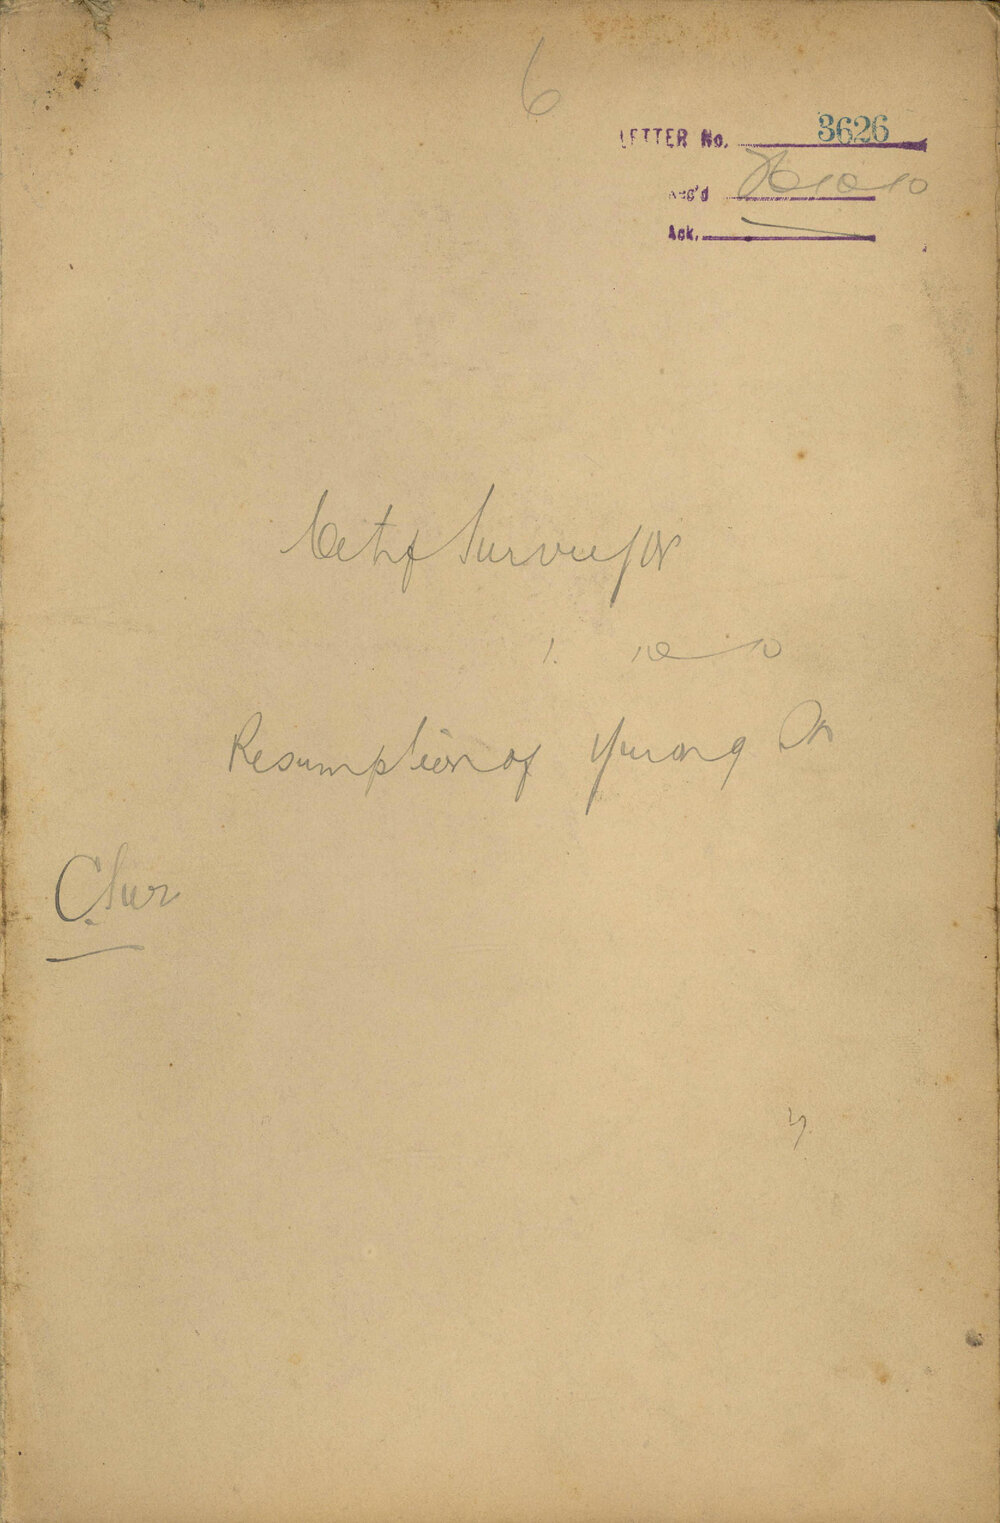 6
LETTER No. 3626
Rec'd 10 10
Ack.
Surveyor
1. 10 10
Resumption of Yurong
C. Sur